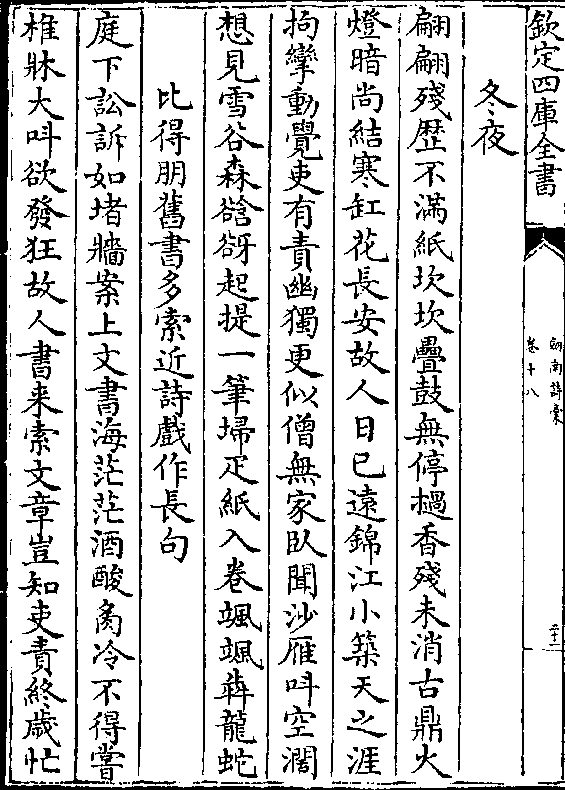 欽定四庫全書
劍南詩稾
卷十八
二十二
冬夜
翩翩殘歷不滿紙坎坎疊鼓無停檛香殘未消古鼎火
燈暗尚結寒缸花長安故人日已遠錦江小築天之涯
拘攣動覺吏有責幽獨更似僧無家臥聞沙雁呌空濶
想見雪谷森谽谺起提一筆埽疋紙入卷颯颯犇龍蛇
比得朋舊書多索近詩戲作長句
庭下訟訴如堵牆案上文書海茫茫酒酸胾冷不得嘗
椎牀大呌欲發狂故人書来索文章豈知吏責終歲忙